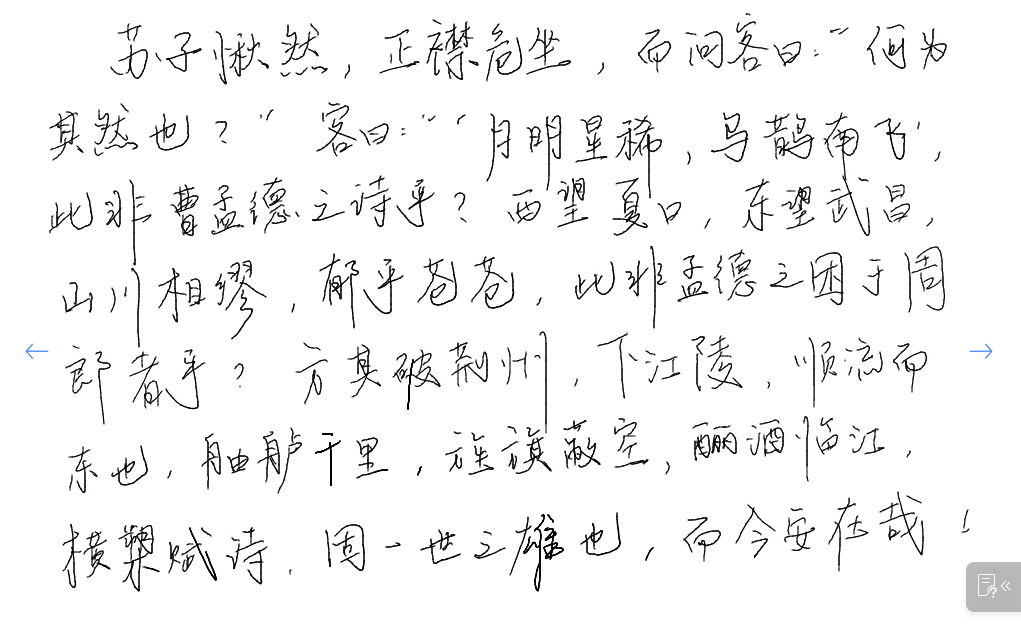 苏子愀然，正襟危坐，而问客曰：“何为
其然也？”客曰：“‘月明星稀，乌鹊南飞’，
此非曹孟德之诗乎？西望夏口，东望武昌，
山川相缪，郁乎苍苍，此非孟德之困于周
郎者乎？方其破荆州，下江陵，顺流而
东也，舳舻千里，旌旗蔽空，酾酒临江，
横槊赋诗，固一世之雄也，而今安在哉！